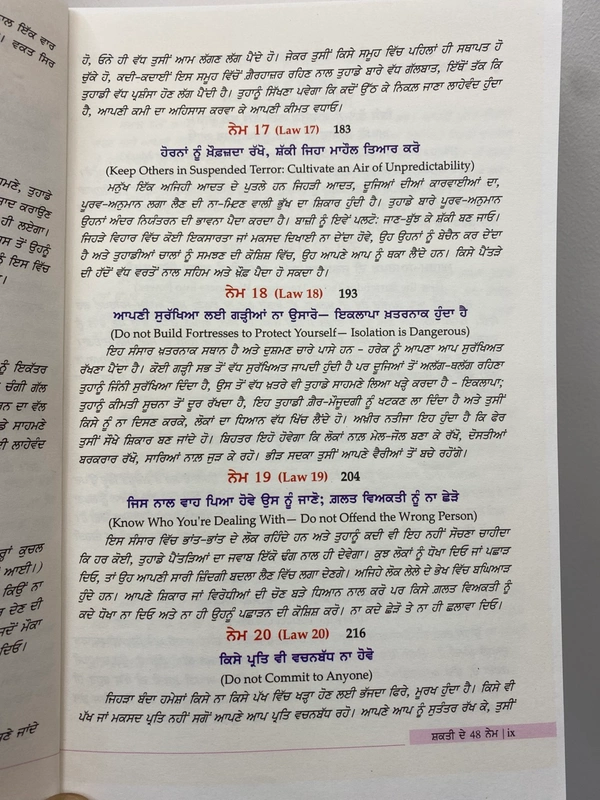 ਹੋ, ਓਨੇ ਹੀ ਵੱਧ ਤੁਸੀਂ ਆਮ ਲੱਗਣ ਲੱਗ ਪੈਂਦੇ ਹੋ। ਜੇਕਰ ਤੁਸੀਂ ਕਿਸੇ ਸਮੂਹ ਵਿੱਚ ਪਹਿਲਾਂ ਹੀ ਸਥਾਪਤ ਹੋ
ਚੁੱਕੇ ਹੋ, ਕਦੀ-ਕਦਾਈਂ ਇਸ ਸਮੂਹ ਵਿੱਚੋਂ ਗ਼ੈਰਹਾਜ਼ਰ ਰਹਿਣ ਨਾਲ ਤੁਹਾਡੇ ਬਾਰੇ ਵੱਧ ਗੱਲਬਾਤ, ਇੱਥੋਂ ਤੱਕ ਕਿ
ਤੁਹਾਡੀ ਵੱਧ ਪ੍ਰਸ਼ੰਸਾ ਹੋਣ ਲੱਗ ਪੈਂਦੀ ਹੈ। ਤੁਹਾਨੂੰ ਸਿੱਖਣਾ ਪਵੇਗਾ ਕਿ ਕਦੋਂ ਉੱਠ ਕੇ ਨਿਕਲ ਜਾਣਾ ਲਾਹੇਵੰਦ ਹੁੰਦਾ
ਹੈ, ਆਪਣੀ ਕਮੀ ਦਾ ਅਹਿਸਾਸ ਕਰਵਾ ਕੇ ਆਪਣੀ ਕੀਮਤ ਵਧਾਓ।
ਨੇਮ 17 (Law 17) 183
ਹੋਰਨਾਂ ਨੂੰ ਖ਼ੌਫ਼ਜ਼ਦਾ ਰੱਖੋ, ਸ਼ੱਕੀ ਜਿਹਾ ਮਾਹੌਲ ਤਿਆਰ ਕਰੋ
(Keep Others in Suspended Terror: Cultivate an Air of Unpredictability)
ਮਨੁੱਖ ਇੱਕ ਅਜਿਹੀ ਆਦਤ ਦੇ ਪੁਤਲੇ ਹਨ ਜਿਹੜੀ ਆਦਤ, ਦੂਜਿਆਂ ਦੀਆਂ ਕਾਰਵਾਈਆਂ ਦਾ,
ਪੂਰਵ-ਅਨੁਮਾਨ ਲਗਾ ਲੈਣ ਦੀ ਨਾ-ਮਿਟਣ ਵਾਲੀ ਭੁੱਖ ਦਾ ਸ਼ਿਕਾਰ ਹੁੰਦੀ ਹੈ। ਤੁਹਾਡੇ ਬਾਰੇ ਪੂਰਵ-ਅਨੁਮਾਨ
ਉਹਨਾਂ ਅੰਦਰ ਨਿਯੰਤਰਨ ਦੀ ਭਾਵਨਾ ਪੈਦਾ ਕਰਦਾ ਹੈ। ਬਾਜ਼ੀ ਨੂੰ ਇਵੇਂ ਪਲਟੋ: ਜਾਣ-ਬੁੱਝ ਕੇ ਸ਼ੱਕੀ ਬਣ ਜਾਓ।
ਜਿਹੜੇ ਵਿਹਾਰ ਵਿੱਚ ਕੋਈ ਇਕਸਾਰਤਾ ਜਾਂ ਮਕਸਦ ਦਿਖਾਈ ਨਾ ਦੇਂਦਾ ਹੋਵੇ, ਉਹ ਉਹਨਾਂ ਨੂੰ ਬੇਚੈਨ ਕਰ ਦੇਂਦਾ
ਹੈ ਅਤੇ ਤੁਹਾਡੀਆਂ ਚਾਲਾਂ ਨੂੰ ਸਮਝਣ ਦੀ ਕੋਸ਼ਿਸ਼ ਵਿੱਚ, ਉਹ ਆਪਣੇ ਆਪ ਨੂੰ ਥਕਾ ਲੈਂਦੇ ਹਨ। ਕਿਸੇ ਪੈਂਤੜੇ
ਦੀ ਹੱਦੋਂ ਵੱਧ ਵਰਤੋਂ ਨਾਲ ਸਹਿਮ ਅਤੇ ਖ਼ੌਫ਼ ਪੈਦਾ ਹੋ ਸਕਦਾ ਹੈ।
ਨੇਮ 18 (Law 18) 193
ਆਪਣੀ ਸੁਰੱਖਿਆ ਲਈ ਗੜ੍ਹੀਆਂ ਨਾ ਉਸਾਰੋ— ਇਕਲਾਪਾ ਖ਼ਤਰਨਾਕ ਹੁੰਦਾ ਹੈ
(Do not Build Fortresses to Protect Yourself— Isolation is Dangerous)
ਇਹ ਸੰਸਾਰ ਖ਼ਤਰਨਾਕ ਸਥਾਨ ਹੈ ਅਤੇ ਦੁਸ਼ਮਣ ਚਾਰੇ ਪਾਸੇ ਹਨ - ਹਰੇਕ ਨੂੰ ਆਪਣਾ ਆਪ ਸੁਰੱਖਿਅਤ
ਰੱਖਣਾ ਪੈਂਦਾ ਹੈ। ਕੋਈ ਗੜ੍ਹੀ ਸਭ ਤੋਂ ਵੱਧ ਸੁਰੱਖਿਅਤ ਜਾਪਦੀ ਹੁੰਦੀ ਹੈ ਪਰ ਦੂਜਿਆਂ ਤੋਂ ਅਲੱਗ-ਥਲੱਗ ਰਹਿਣਾ
ਤੁਹਾਨੂੰ ਜਿੰਨੀ ਸੁਰੱਖਿਆ ਦਿੰਦਾ ਹੈ, ਉਸ ਤੋਂ ਵੱਧ ਖ਼ਤਰੇ ਵੀ ਤੁਹਾਡੇ ਸਾਹਮਣੇ ਲਿਆ ਖੜ੍ਹੇ ਕਰਦਾ ਹੈ - ਇਕਲਾਪਾ;
ਤੁਹਾਨੂੰ ਕੀਮਤੀ ਸੂਚਨਾ ਤੋਂ ਦੂਰ ਰੱਖਦਾ ਹੈ, ਇਹ ਤੁਹਾਡੀ ਗ਼ੈਰ-ਮੌਜੂਦਗੀ ਨੂੰ ਖਟਕਣ ਲਾ ਦਿੰਦਾ ਹੈ ਅਤੇ ਤੁਸੀਂ
ਕਿਸੇ ਨੂੰ ਨਾ ਦਿਸਣ ਕਰਕੇ, ਲੋਕਾਂ ਦਾ ਧਿਆਨ ਵੱਧ ਖਿੱਚ ਲੈਂਦੇ ਹੋ। ਅਖ਼ੀਰ ਨਤੀਜਾ ਇਹ ਹੁੰਦਾ ਹੈ ਕਿ ਫੇਰ
ਤੁਸੀਂ ਸੌਖੇ ਸ਼ਿਕਾਰ ਬਣ ਜਾਂਦੇ ਹੋ। ਬਿਹਤਰ ਇਹੋ ਹੋਵੇਗਾ ਕਿ ਲੋਕਾਂ ਨਾਲ਼ ਮੇਲ-ਜੋਲ ਬਣਾ ਕੇ ਰੱਖੋ, ਦੋਸਤੀਆਂ
ਬਰਕਰਾਰ ਰੱਖੋ, ਸਾਰਿਆਂ ਨਾਲ਼ ਜੁੜ ਕੇ ਰਹੋ। ਭੀੜ ਸਦਕਾ ਤੁਸੀਂ ਆਪਣੇ ਵੈਰੀਆਂ ਤੋਂ ਬਚੇ ਰਹੋਂਗੇ।
ਨੇਮ 19 (Law 19) 204
ਜਿਸ ਨਾਲ ਵਾਹ ਪਿਆ ਹੋਵੇ ਉਸ ਨੂੰ ਜਾਣੋ; ਗ਼ਲਤ ਵਿਅਕਤੀ ਨੂੰ ਨਾ ਛੇੜੋ
(Know Who You're Dealing With— Do not Offend the Wrong Person)
ਇਸ ਸੰਸਾਰ ਵਿੱਚ ਭਾਂਤ-ਭਾਂਤ ਦੇ ਲੋਕ ਰਹਿੰਦੇ ਹਨ ਅਤੇ ਤੁਹਾਨੂੰ ਕਦੀ ਵੀ ਇਹ ਨਹੀਂ ਸੋਚਣਾ ਚਾਹੀਦਾ
ਕਿ ਹਰ ਕੋਈ, ਤੁਹਾਡੇ ਪੈਂਤੜਿਆਂ ਦਾ ਜਵਾਬ ਇੱਕੋ ਢੰਗ ਨਾਲ ਹੀ ਦੇਵੇਗਾ। ਕੁਝ ਲੋਕਾਂ ਨੂੰ ਧੋਖਾ ਦਿਓ ਜਾਂ ਪਛਾੜ
ਦਿਓ, ਤਾਂ ਉਹ ਆਪਣੀ ਸਾਰੀ ਜ਼ਿੰਦਗੀ ਬਦਲਾ ਲੈਣ ਵਿੱਚ ਲਗਾ ਦੇਣਗੇ। ਅਜਿਹੇ ਲੋਕ ਲੇਲੇ ਦੇ ਭੇਖ ਵਿੱਚ ਬਘਿਆੜ
ਹੁੰਦੇ ਹਨ। ਆਪਣੇ ਸ਼ਿਕਾਰ ਜਾਂ ਵਿਰੋਧੀਆਂ ਦੀ ਚੋਣ ਬੜੇ ਧਿਆਨ ਨਾਲ ਕਰੋ ਪਰ ਕਿਸੇ ਗ਼ਲਤ ਵਿਅਕਤੀ ਨੂੰ
ਕਦੇ ਧੋਖਾ ਨਾ ਦਿਓ ਅਤੇ ਨਾ ਹੀ ਉਹਨੂੰ ਪਛਾੜਨ ਦੀ ਕੋਸ਼ਿਸ਼ ਕਰੋ। ਨਾ ਕਦੇ ਛੇੜੋ ਤੇ ਨਾ ਹੀ ਛਲਾਵਾ ਦਿਓ।
ਨੇਮ 20 (Law 20) 216
ਕਿਸੇ ਪ੍ਰਤਿ ਵੀ ਵਚਨਬੱਧ ਨਾ ਹੋਵੋ
(Do not Commit to Anyone)
ਜਿਹੜਾ ਬੰਦਾ ਹਮੇਸ਼ਾਂ ਕਿਸੇ ਨਾ ਕਿਸੇ ਪੱਖ ਵਿੱਚ ਖੜ੍ਹਾ ਹੋਣ ਲਈ ਭੱਜਦਾ ਫਿਰੇ, ਮੂਰਖ ਹੁੰਦਾ ਹੈ। ਕਿਸੇ ਵੀ
ਪੱਖ ਜਾਂ ਮਕਸਦ ਪ੍ਰਤਿ ਨਹੀਂ ਸਗੋਂ ਆਪਣੇ ਆਪ ਪ੍ਰਤਿ ਵਚਨਬੱਧ ਰਹੋ। ਆਪਣੇ ਆਪ ਨੂੰ ਸੁਤੰਤਰ ਰੱਖ ਕੇ, ਤੁਸੀਂ
ਸ਼ਕਤੀ ਦੇ 48 ਨੇਮ | ix